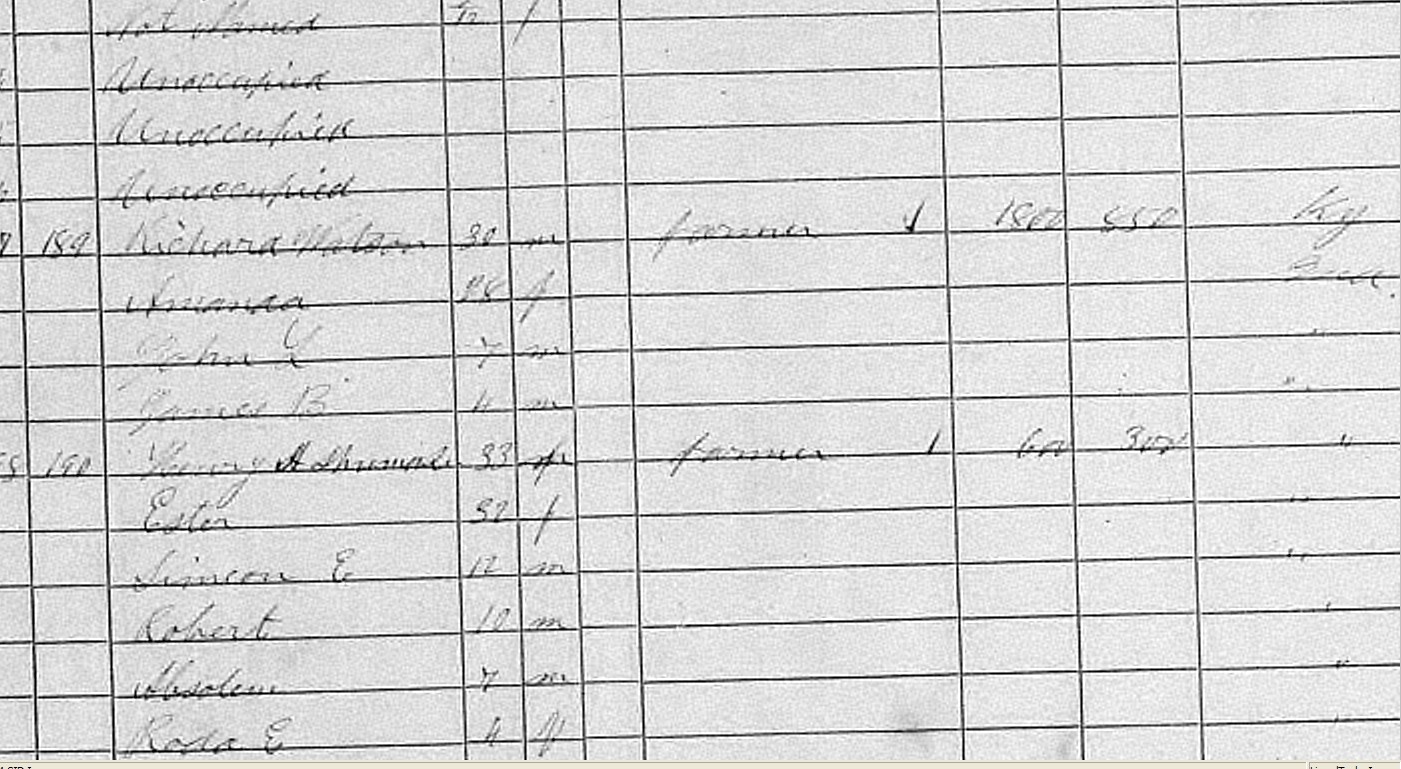 Not Named /12 f
Unoccupied
Unoccupied
Unoccupied
189 Richard Wilson 30 m farmer 1 1800 550 Ky
Amanda 28 f
John L 7 m "
James B 4 m "
190 Henry 33 m farmer 1 600 300 "
Ester 32 f "
Simeon E 12 m "
Robert 10 m "
Absolem 7 m "
Rosa E 4 f "